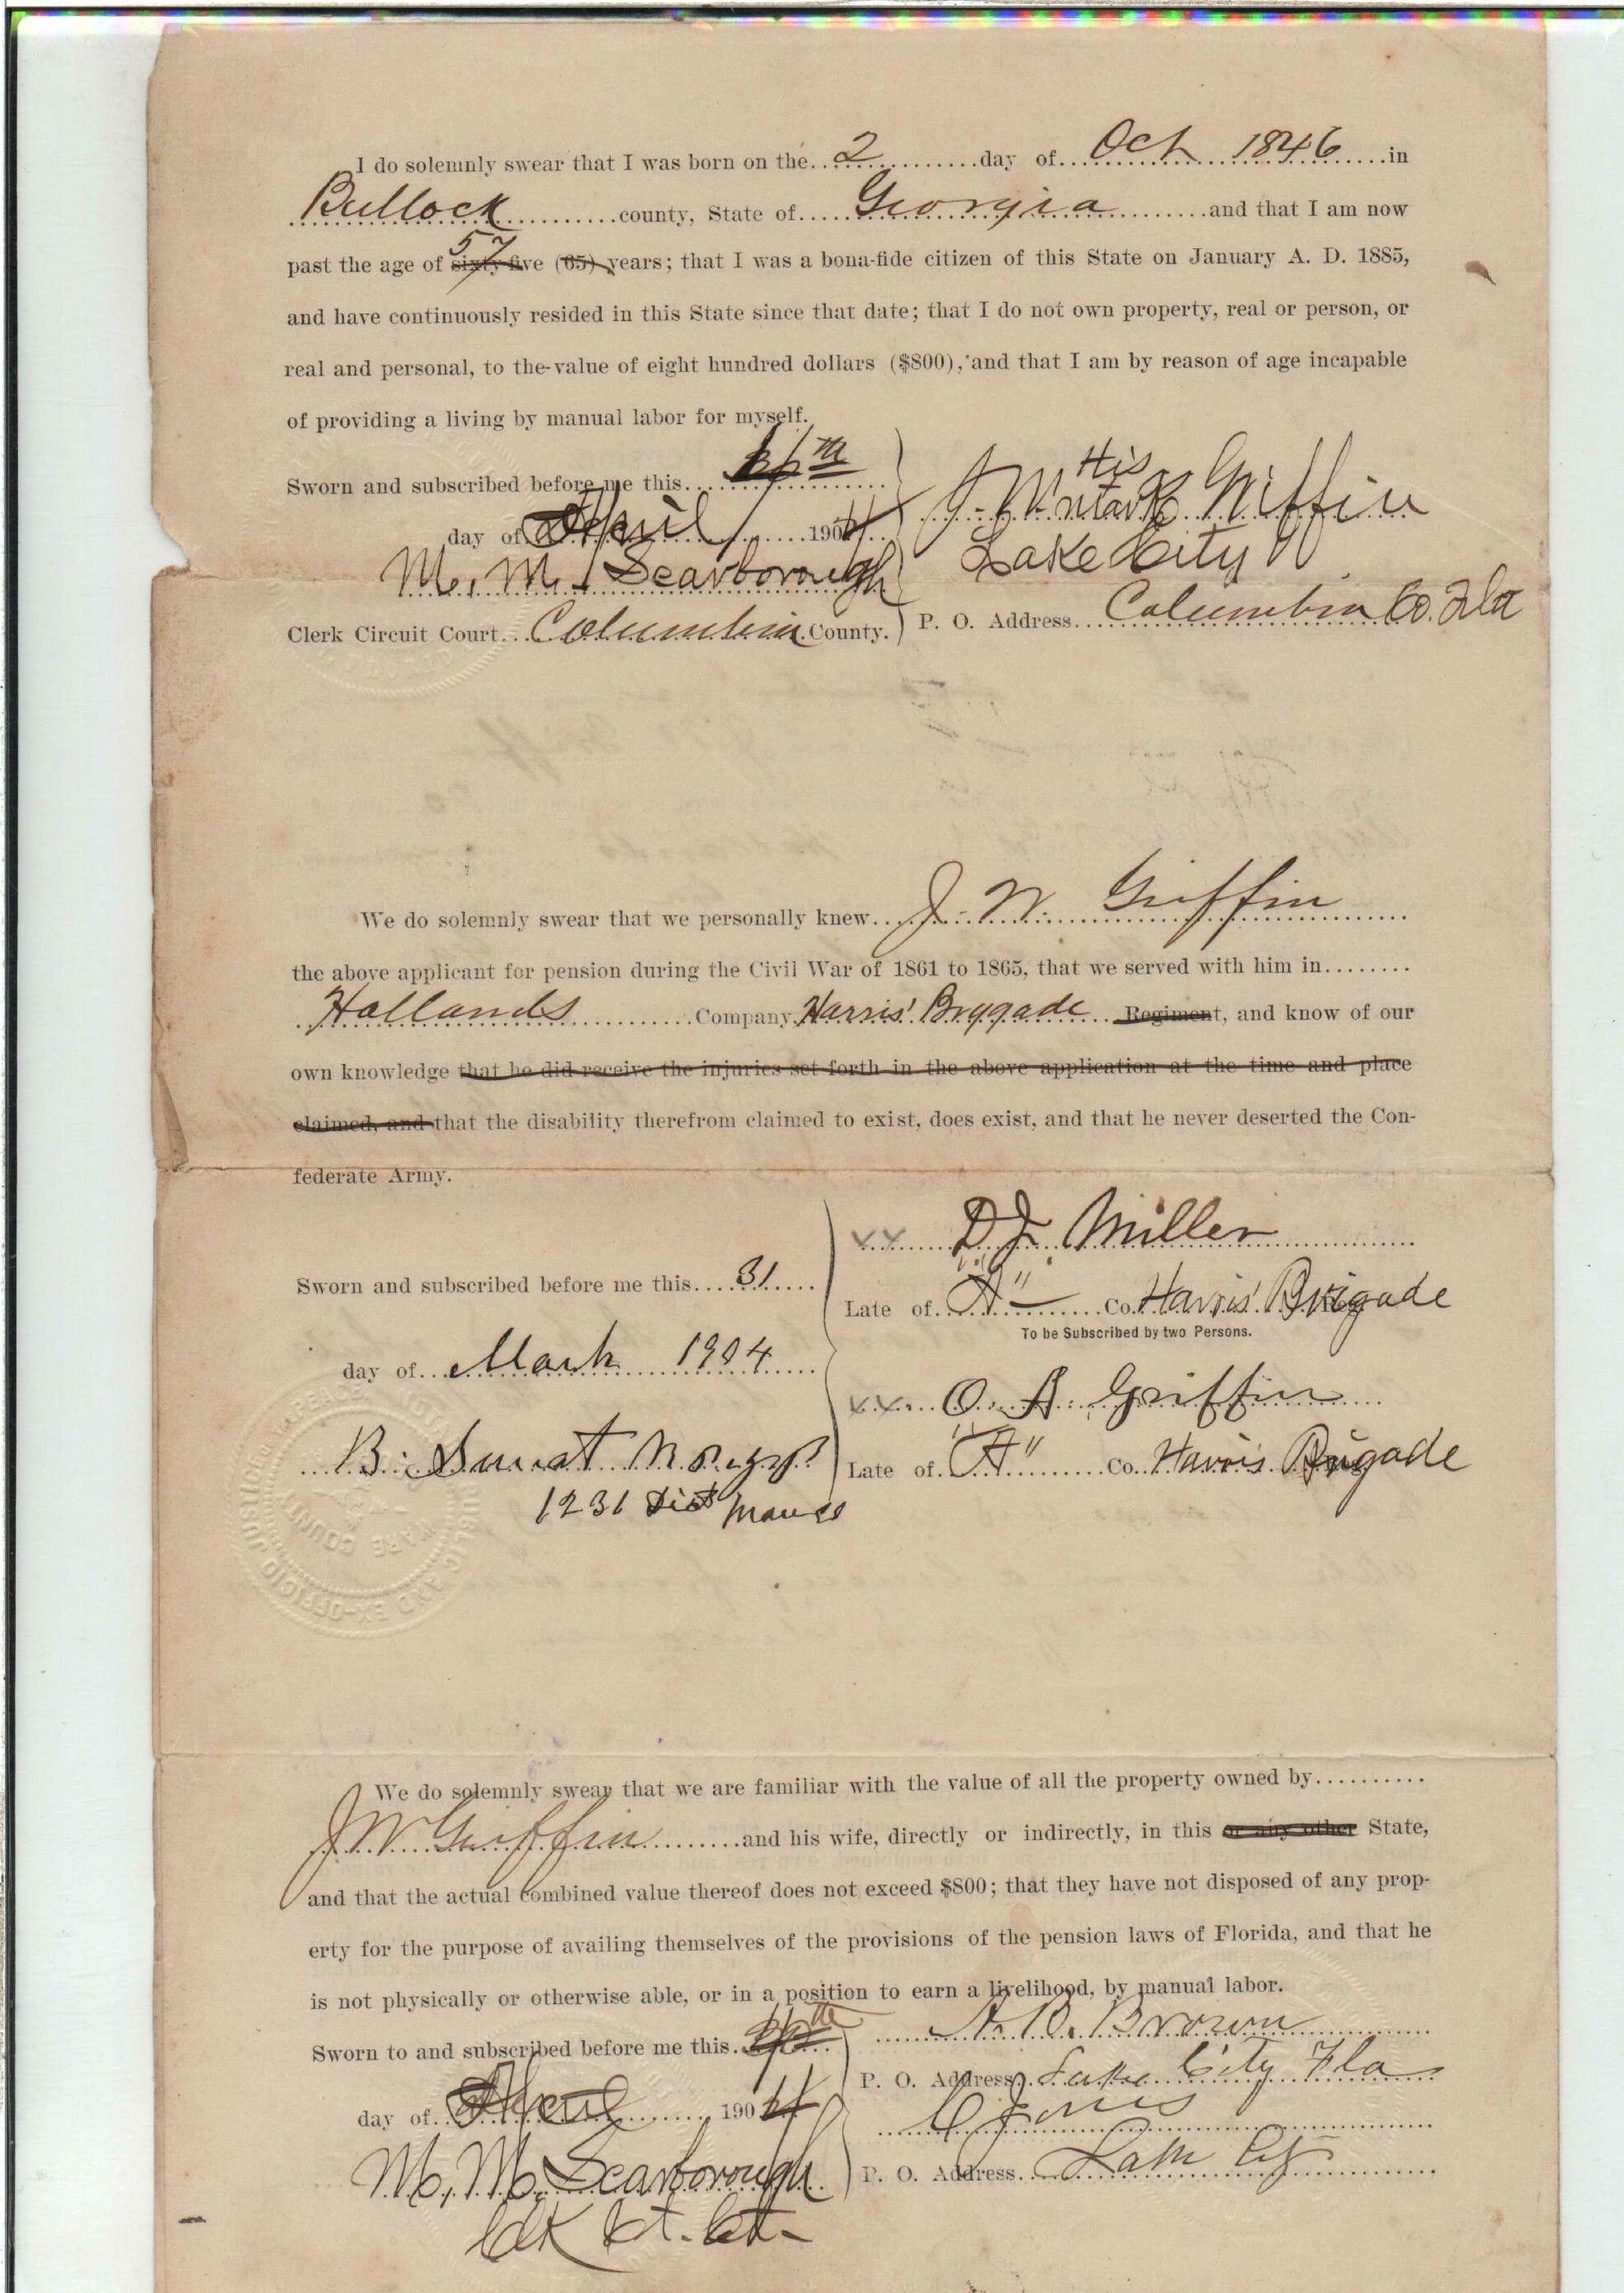 I do solemnly swear that I was born on the 2 day of Oct 1846 in
Bullock county, State of Georgia and that I am now
past the age of 57 sixty-five (65) years; that I was a bona-fide citizen of this State on January A. D. 1885,
and have continuously resided in this State since that date; that I do not own property, real or person, or
real and personal, to the value of eight hundred dollars ($800), and that I am by reason of age incapable
of providing a living by manual labor for myself.
Sworn and subscribed before me this
day of April 1904
J. W. His mark Griffin
M. M. Scarborough
Lake City
Clerk Circuit Court Columbia County.
P. O. Address Columbia Co. Fla
We do solemnly swear that we personally knew J. W. Griffin
the above applicant for pension during the Civil War of 1861 to 1865, that we served with him in
Hollands Company Harris' Brygade Regiment, and know of our
own knowledge that he did receive the injuries set forth in the above application at the time and place
claimed, and that the disability therefrom claimed to exist, does exist, and that he never deserted the Con-
federate Army.
xx D J Miller
Sworn and subscribed before me this 31
Late of "A" Co. Harris' Brigade
To be Subscribed by two Persons.
day of March 1904
xx O. A. Griffin
B.
Late of "A" Co. Harris Brigade
1231 Dist
We do solemnly swear that we are familiar with the value of all the property owned by
J W Griffin and his wife, directly or indirectly, in this or any other State,
and that the actual combined value thereof does not exceed $800; that they have not disposed of any prop-
erty for the purpose of availing themselves of the provisions of the pension laws of Florida, and that he
is not physically or otherwise able, or in a position to earn a livelihood, by manual labor.
Sworn to and subscribed before me this
Brown
P. O. Address Lake City Fla
day of April 1904
Jones
M. M. Scarborough
P. O. Address Lake City
Clk Ct. Ct.